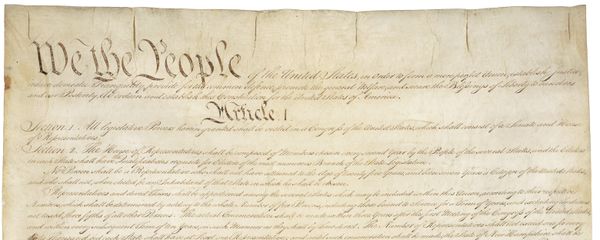 We the People of the United States, in Order to form a more perfect Union, establish Justice,
insure domestic Tranquility, provide for the common defence, promote the general Welfare, and secure the Blessings of Liberty to ourselves
and our Posterity, do ordain and establish this Constitution for the United States of America.
Article. I.
Section. 1. All legislative Powers herein granted shall be vested in a Congress of the United States, which shall consist of a Senate and House
of Representatives.
Section. 2. The House of Representatives shall be composed of Members chosen every second Year by the People of the several States, and the Electors
in each State shall have the Qualifications requisite for Electors of the most numerous Branch of the State Legislature.
No Person shall be a Representative who shall not have attained to the Age of twenty five Years, and been seven Years a Citizen of the United States,
and who shall not, when elected, be an Inhabitant of that State in which he shall be chosen.
Representatives and direct Taxes shall be apportioned among the several States which may be included within this Union, according to their respective
Numbers, which shall be determined by adding to the whole Number of free Persons, including those bound to Service for a Term of Years, and excluding Indians
not taxed, three fifths of all other Persons. The actual Enumeration shall be made within three Years after the first Meeting of the Congress of the United States,
and within every subsequent Term of ten Years, in such Manner as they shall by Law direct. The Number of Representatives shall not exceed one for
each State shall have at Least one Representative; and until such enumeration shall be made, the State of New Hampshire shall be